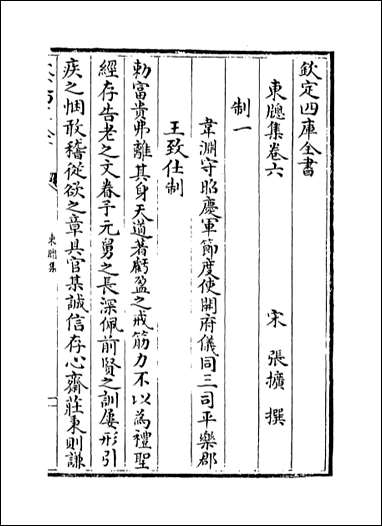 欽定四庫全書
東牕集卷六
宋 張擴 撰
制一
韋淵守昭慶軍節度使開府儀同三司平樂郡
王致仕制
勅富貴弗離其身天道著虧盈之戒筋力不以為禮聖
經存告老之文眷予元舅之長深佩前賢之訓屢形引
疾之悃敢稽從欲之章具官某誠信存心齋莊秉則謙
東牕集